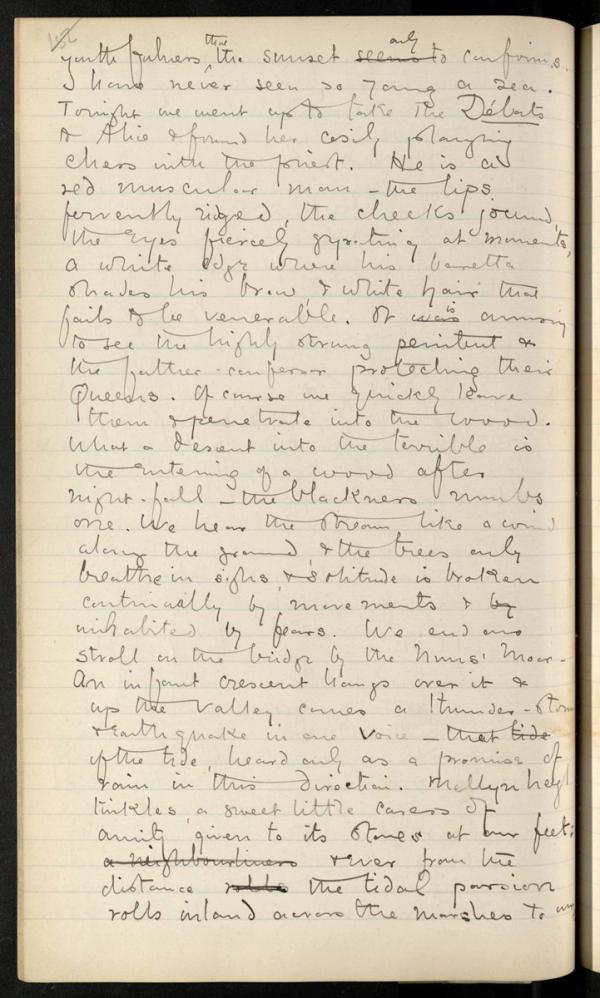 152
youthfulness, that the sunset seems only to confirms.
I have never seen so young a sea.
Tonight we went up to take the Débats
to Alice & found her cosily playing
chess with the priest. He is a
red muscular man – the lips
fervently ridged, the cheeks jocund,
the eyes fiercely gyrating at moments,
a white edge where his baretta
shades his brow, & white hair that
fails to be venerable. It was is amusing
to see the highly strung penitent &
the father-confessor protecting their
Queens. Of course we quickly leave
them & penetrate into the wood.
What a descent into the terrible is
the entering of a wood after
night-fall – the blackness numbs
one. We hear the stream like a wind
along the ground, & the trees only
breathe in sighs, & solitude is broken
continually by movements & by
inhabited by fears. We end our
stroll on the bridge by the Nuns' Moor –
An infant crescent hangs over it &
up the valley comes a thunder-storm
& earthquake in one voice – that tide
of the tide, heard only as a promise of
rain in this direction.
tinkles, a sweet little caress of
amity given to its stones at our feet;
a neighbourliness & ever from the
distance rolls the tidal passion
rolls inland across the marshes to